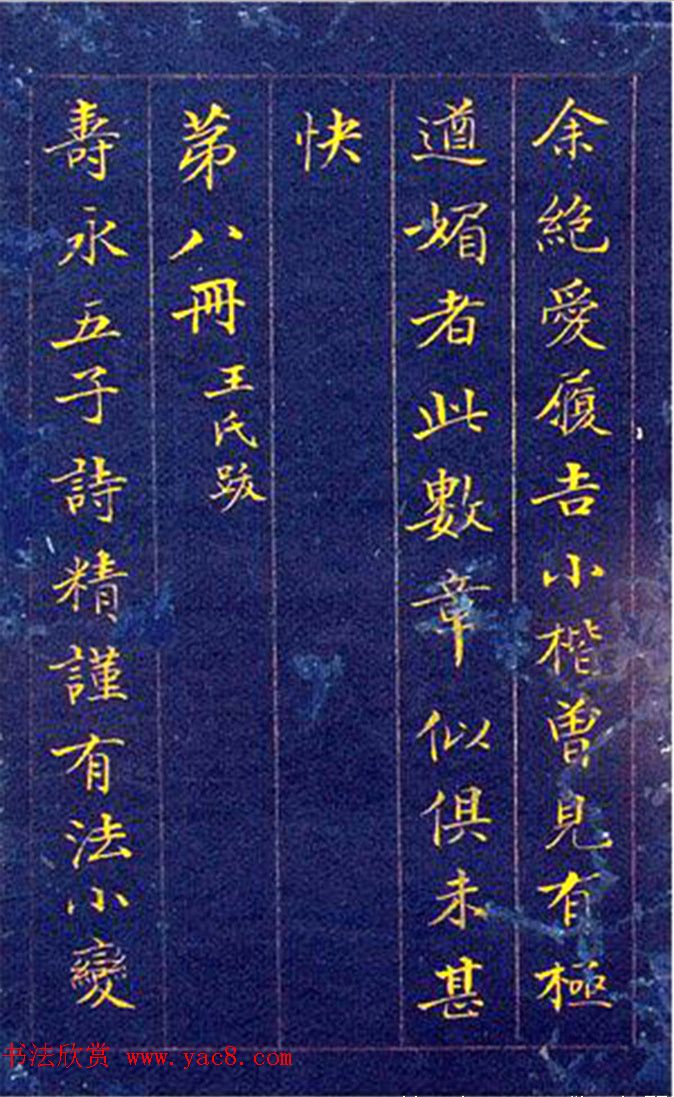 余絶愛履吉小楷曽見有極
遒媚者此數章似俱未甚
快
苐八冊 王氏跋
壽永五子詩精謹有法小變
书法欣赏 www.yac8.com